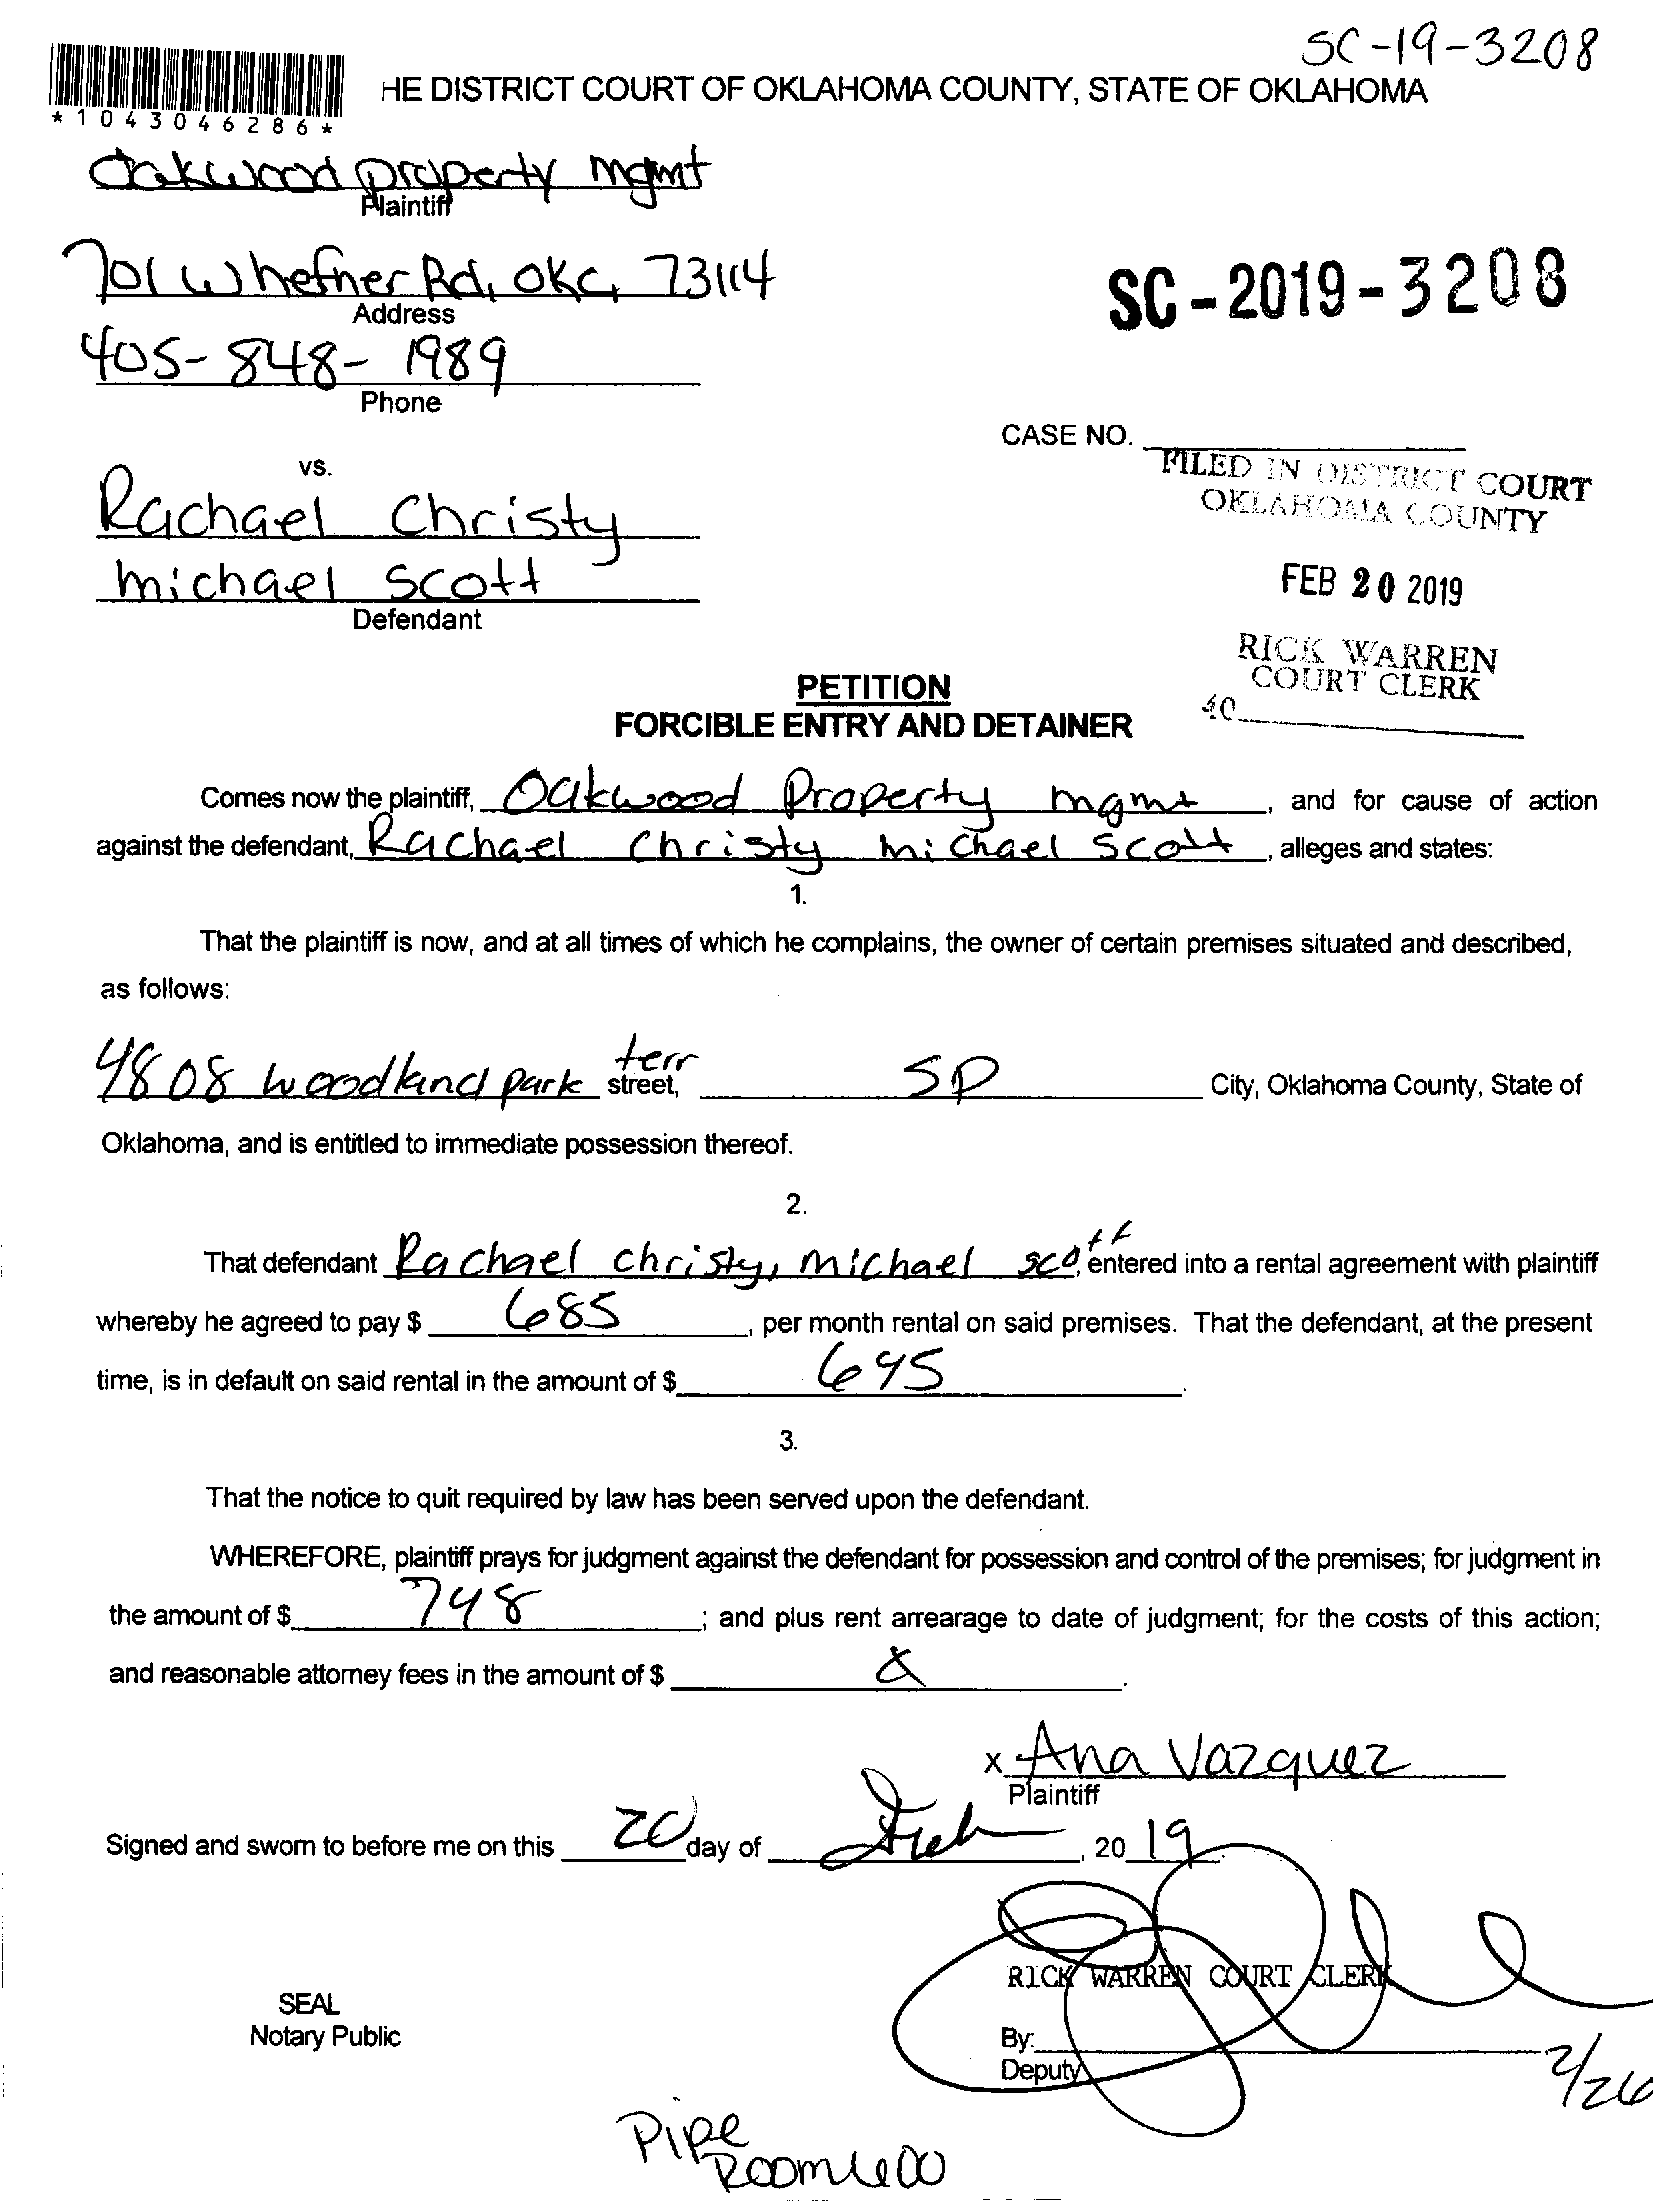 SC-19-3208
HE DISTRICT COURT OF OKLAHOMA COUNTY, STATE OF OKLAHOMA
*1043046286*
Oakwood property mgmt
Plaintiff
701 W hefner Rd, OKC, 73114
Address
SC-2019-3208
405-848-1989
Phone
CASE NO.
vs.
FILED IN DISTRICT COURT
OKLAHOMA COUNTY
Rachael Christy
michael scott
Defendant
FEB 20 2019
RICK WARREN
COURT CLERK
40
PETITION
FORCIBLE ENTRY AND DETAINER
Comes now the plaintiff, Oakwood Property mgmt, and for cause of action
against the defendant, Rachael Christy michael Scott, alleges and states:
1.
That the plaintiff is now, and at all times of which he complains, the owner of certain premises situated and described,
as follows:
4808 woodland park terr street, SP City, Oklahoma County, State of
Oklahoma, and is entitled to immediate possession thereof.
2.
That defendant Rachael christy, michael scott, entered into a rental agreement with plaintiff
whereby he agreed to pay $ 685, per month rental on said premises. That the defendant, at the present
time, is in default on said rental in the amount of $ 695.
3.
That the notice to quit required by law has been served upon the defendant.
WHEREFORE, plaintiff prays for judgment against the defendant for possession and control of the premises; for judgment in
the amount of $ 748; and plus rent arrearage to date of judgment; for the costs of this action;
and reasonable attorney fees in the amount of $.
x Ana Vazquez
Plaintiff
Signed and sworn to before me on this 20 day of Feb, 2019
RICK WARREN COURT CLERK
SEAL
Notary Public
By:
Deputy
2/26
Pipe
Room 600